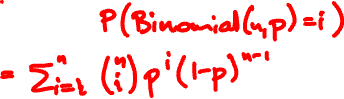 P(Binomial(n,p)=i)
= ∑_{i=k}^{n} (n i) p^i (1-p)^{n-1}